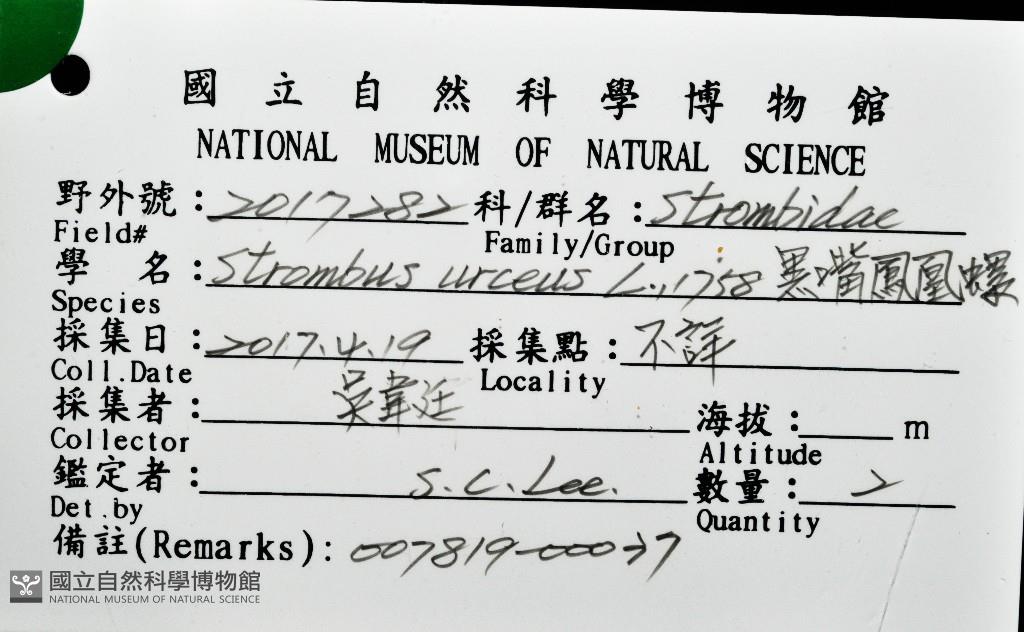 國立自然科學博物館
NATIONAL MUSEUM OF NATURAL SCIENCE
野外號：2017282 科/群名：Strombidae
Field# Family/Group
學名：Strombus urceus L.,1758 黑嘴鳳凰螺
Species
採集日：2017.4.19 採集點：不詳
Coll.Date Locality
採集者：吳韋廷 海拔： m
Collector Altitude
鑑定者：S.C.Lee. 數量：2
Det.by Quantity
備註(Remarks)：007819-00037
國立自然科學博物館
NATIONAL MUSEUM OF NATURAL SCIENCE